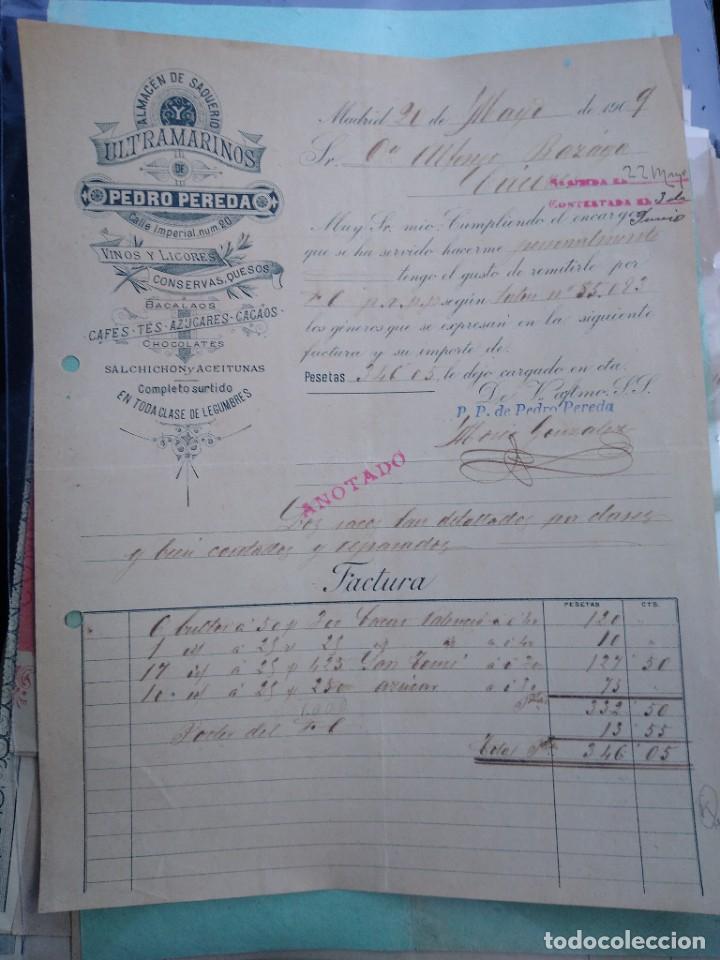 ALMACÉN DE SAQUERIO
Y
ULTRAMARINOS
DE
PEDRO PEREDA
Calle Imperial, num. 20
VINOS Y LICORES
CONSERVAS, QUESOS
BACALAOS
CAFES-TÉS-AZUCARES-CACAOS
CHOCOLATES
SALCHICHON y ACEITUNAS
Completo surtido
EN TODA CLASE DE LEGUMBRES
Madrid 20 de Mayo de 1909
Sr. Dn Alfonso
22 Mayo
CONTESTADA EL 3 de
Junio
Muy Sr. mio: Cumpliendo el encargo
que se ha servido hacerme personalmente
tengo el gusto de remitirle por
F. C. p.v. según talon nº 55,023
los géneros que se expresan en la siguiente
factura y su importe de:
Pesetas 346'05, le dejo cargado en cta.
De V. afftmo. S.S.
P. P. de Pedro Pereda
Gonzalez
ANOTADO
Los sacos van detallados por clases
y bien contados y repasados
Factura
PESETAS CTS.
6 bultos á 50 p 300 á 0'40 120 "
1 id á 25 " 25 " " á 0'40 10 "
17 id á 25 " 425 San Tomé á 0'30 127 50
10 id á 25 " 250 azúcar á 0'30 75 "
332 50
Portes del F. C. 13 55
Total Ptas 346 05
todocoleccion.net